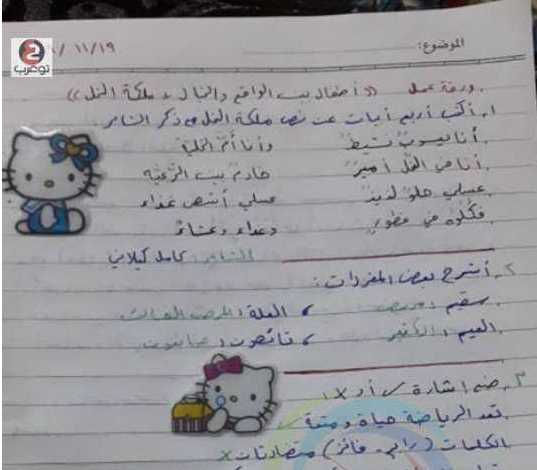 الموضوع:
١١/١٩ /
توعرب
ورقة عمل ((أطفال بين الواقع والخيال + ملكة النحل))
١. أكتب أربع أبيات عن نص ملكة النحل مع ذكر الشاعر.
أنا يعسوبٌ نشيطٌ وأنا أمُّ الخلية
أنا في النحل أميرٌ خادمٌ بين الرَّعيَّة
عسلي حلوٌ لذيذٌ عسلي أشهى غذاء
فكلوه في فطورٍ وغداءٍ وعشاءٍ
الشاعر: كامل كيلاني
٢. أشرح بعض المفردات:
سقيم: مريض ، العلة: المرض
العميم: الكثير ،
٣. ضع إشارة ✓ أو X:
تعد الرياضة حياة ومتعة ✓
الكلمات (رابح - فائز) متضادتان X